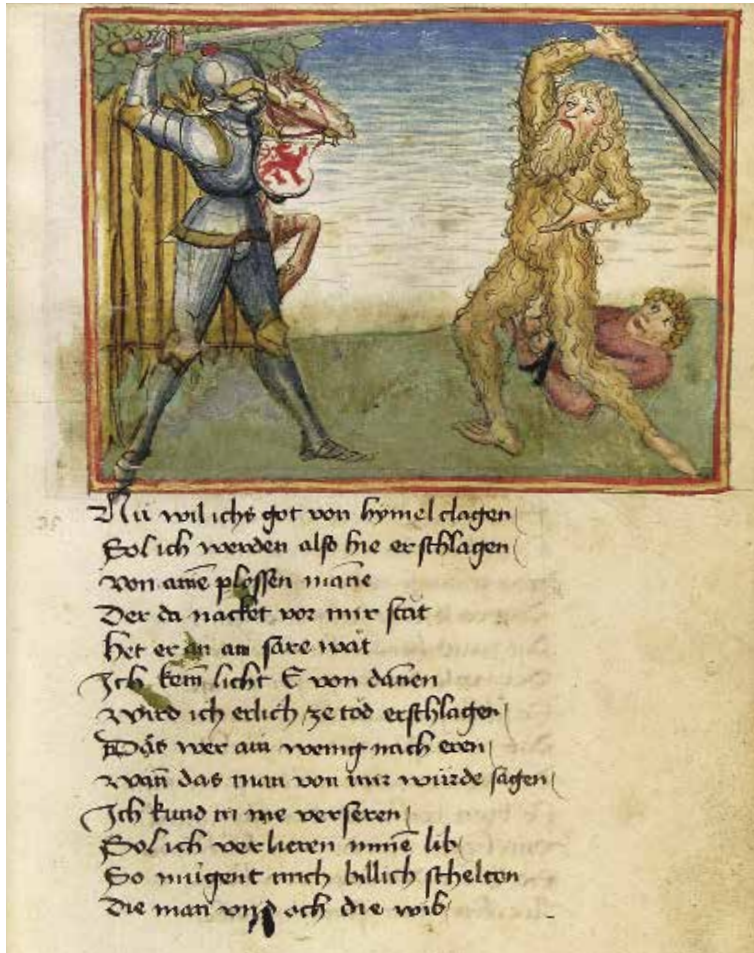 Nu wil ichs got von hymel clagen
Sol ich werden also hie erschlagen
von ainē plossen manne
Der da nacket vor mir stāt
het er an ain sare wāt
Ich kem licht E von dannen
wird ich erlich ze tod erschlagen
Das wer ain wenig nach eren
wañ das man von mir wurde sagen
Ich kund in nie verseren
Sol ich verlieren minē lib
So mugent mich billich schelten
Die man vnd och die wib